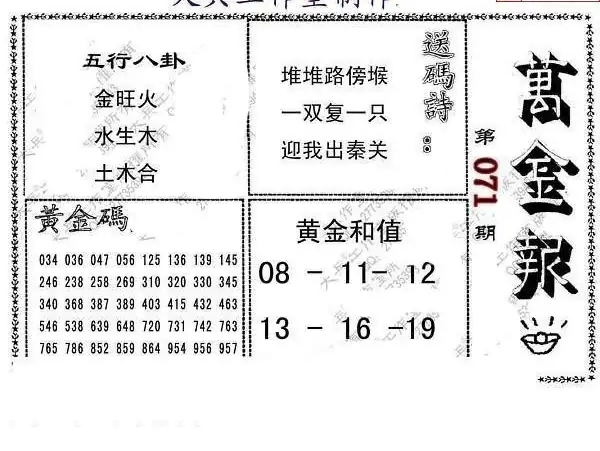 五行八卦
金旺火
水生木
土木合
送碼詩：
堆堆路傍堠
一双复一只
迎我出秦关
萬金報
第071期
黃金碼
034 036 047 056 125 136 139 145
246 238 258 269 310 320 330 345
340 368 387 389 403 415 432 463
546 538 639 648 720 731 742 763
765 786 852 859 864 954 956 957
黄金和值
08 - 11- 12
13 - 16 -19